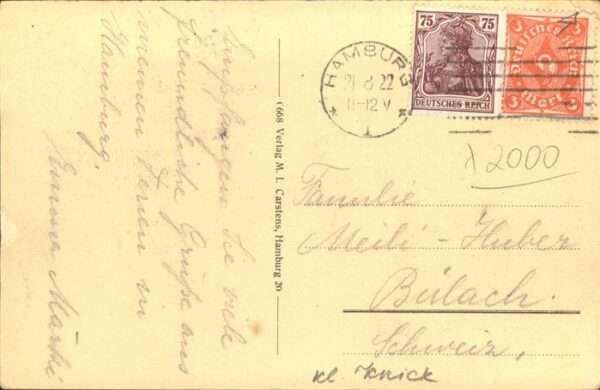 Empfangen Sie viele
freundliche Grüße aus
meinen Ferien in
Hamburg.
Emma
1668 Verlag M. L. Carstens, Hamburg 20
HAMBURG
8 22
11-12 V
1
75 75
DEUTSCHES REICH
Deutsches Reich
3 3
MARK
λ2000
Familie
Meili-Huber
Bülach.
Schweiz,
kl Knick